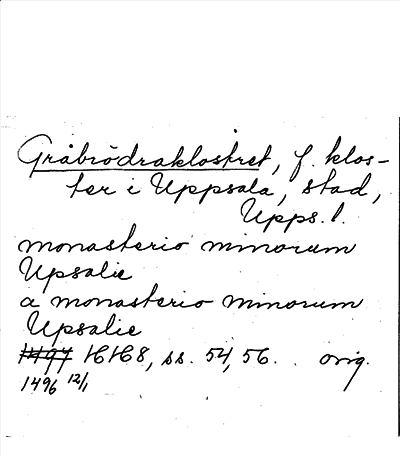 Gråbrödraklostret, f. klos-
ter i Uppsala, stad,
Upps. l.
monasterio minorum
Upsalie
a monasterio minorum
Upsalie
1497 HH8, ss. 54, 56. . orig.
1496 12/1